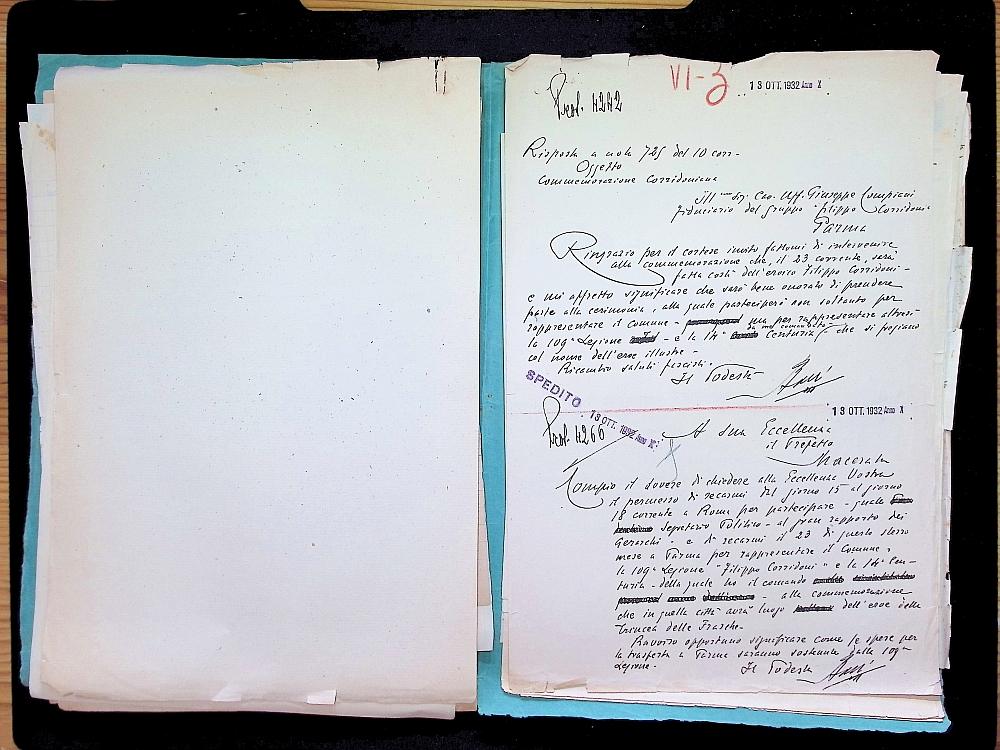 VI-3
13 OTT. 1932 Anno X
Prot. 4242
Risposta a nota 725 del 10 corr-
Oggetto
Commemorazione Corridoniana
Ill mo Sig. Cav. Uff. Giuseppe Compiani
fiduciario del gruppo "Filippo Corridoni"
Parma
Ringrazio per il cortese invito fattomi di intervenire
alla commemorazione che, il 23 corrente, sarà
fatta costà dell'eroico Filippo Corridoni -
e mi affretto significare che sarò bene onorato di prendere
parte alla cerimonia, alla quale parteciperò non soltanto per
rappresentare il Comune - ma per rappresentare altresì
la 109a Legione - e la 14a Centuria da me comandata - che si fregiano
col nome dell'eroe illustre -
Ricambio saluti fascisti.
Il Podestà
SPEDITO
13 OTT. 1932 Anno X
13 OTT. 1932 Anno X
Prot. 4266
A sua Eccellenza
il Prefetto
Macerata
Compio il dovere di chiedere alla Eccellenza Vostra
il permesso di recarmi dal giorno 15 al giorno
18 corrente a Roma per partecipare - quale
Segretario Politico - al gran rapporto dei
Gerarchi - e di recarmi il 23 di questo stesso
mese a Parma per rappresentare il Comune,
la 109a Legione "Filippo Corridoni" e la 14a Cen-
turia - della quale ho il comando - alla commemorazione
che in quella città avrà luogo dell'eroe della
trincea delle Frasche.
Ravviso opportuno significare come le spese per
la trasferta a Parma saranno sostenute dalla 109a
Legione.
Il Podestà